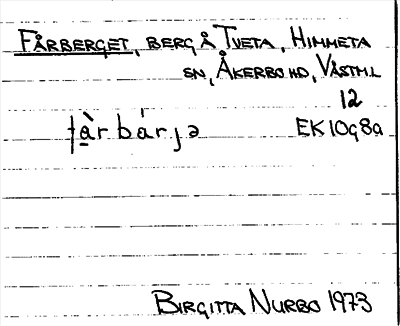 FÅRBERGET, BERG Å TVETA, HIMMETA
SN, ÅKERBO HD, VÄSTM.L
12
fà̱rbárjə EK10g8a
BIRGITTA NURBO 1973